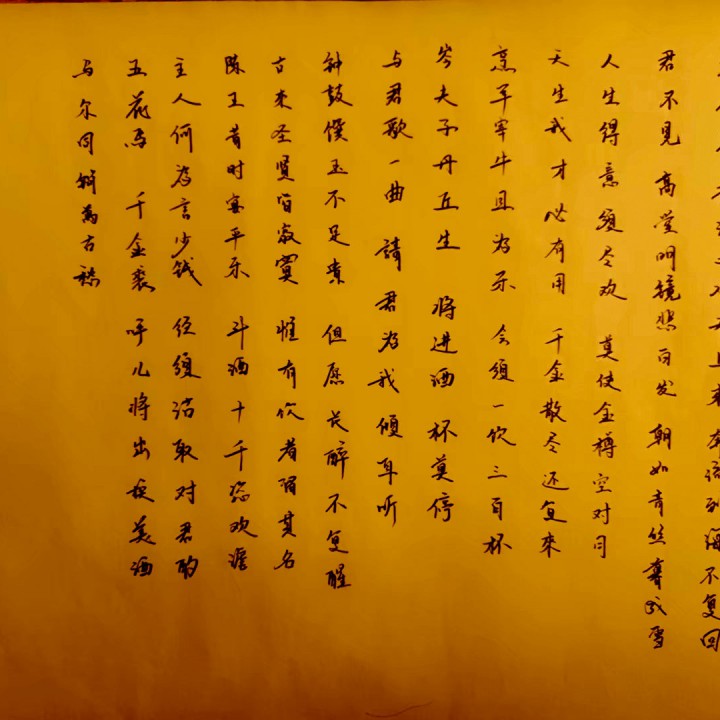 不复回
君不见 高堂明镜悲白发 朝如青丝暮成雪
人生得意须尽欢 莫使金樽空对月
天生我才必有用 千金散尽还复來
烹羊宰牛且为乐 会须一饮三百杯
岑夫子丹丘生 将进酒 杯莫停
与君歌一曲 請君为我倾耳听
钟鼓馔玉不足贵 但愿长醉不复醒
古来圣贤皆寂寞 惟有饮者留其名
陈王昔时宴平乐 斗酒十千恣欢谑
主人何为言少钱 径须沽取对君酌
五花马 千金裘 呼儿将出换美酒
与尔同销萬古愁